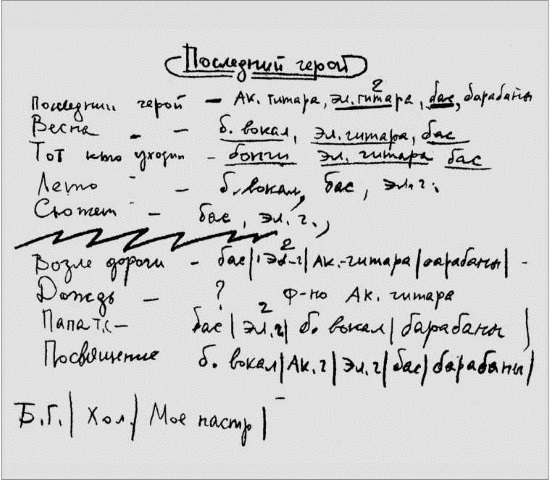 Последний герой
Последний герой – Ак. гитара, эл. гитара, 2 бас, барабаны
Весна – б. вокал, эл. гитара, бас
Тот кто уходит – бонги эл. гитара бас
Лето – б. вокал, бас, эл. г.
Сюжет – бас, эл. г.,
Возле дороги – бас | эл-г 2 | Ак.-гитара | барабаны | -
Дождь – ? ф-но Ак. гитара
Папа т.с – бас | эл. г 2 | б. вокал | барабаны |
Посвящение б. вокал | Ак. г | эл. г | бас | барабаны |
Б.Г. | Хол. | Мое настр |